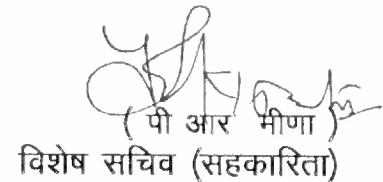 ( पी आर मीणा )
विशेष सचिव (सहकारिता)